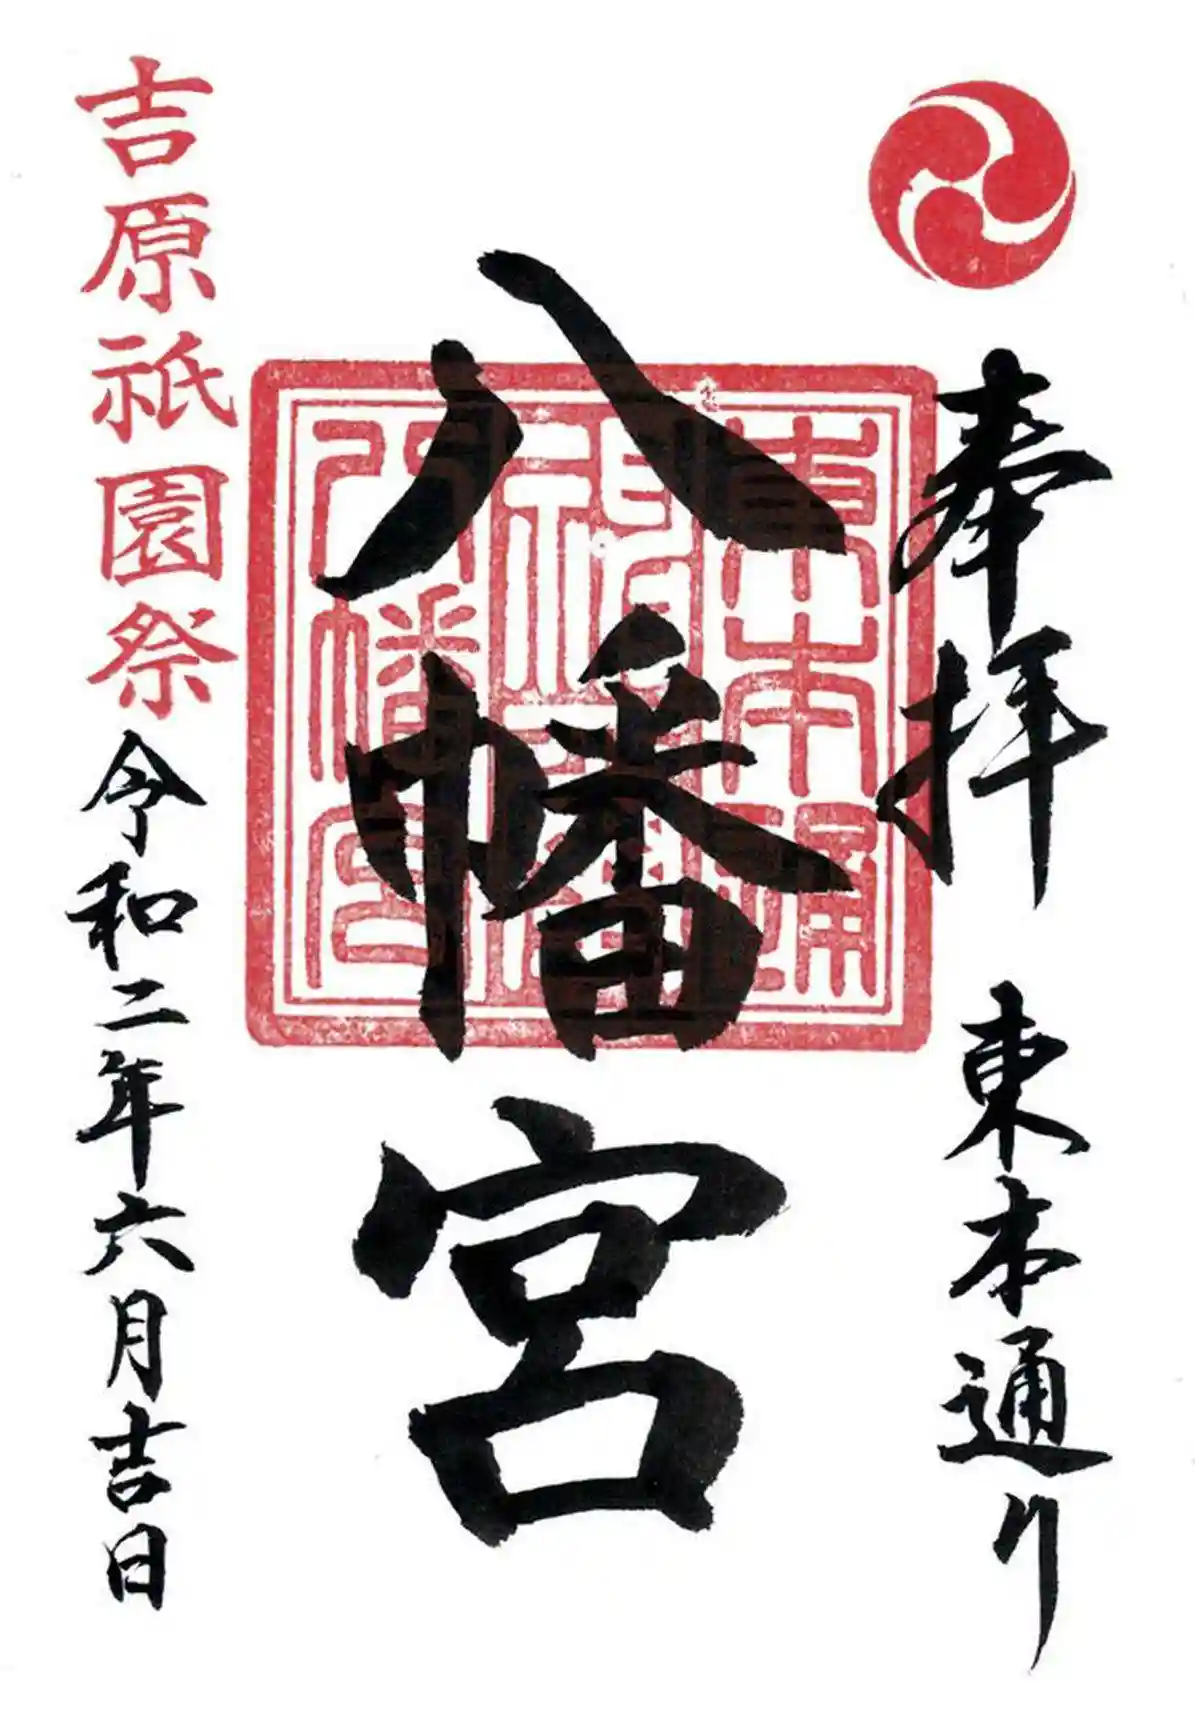 奉拝 東本通り
八幡宮
東本通
八幡宮
吉原祇園祭
令和二年六月吉日